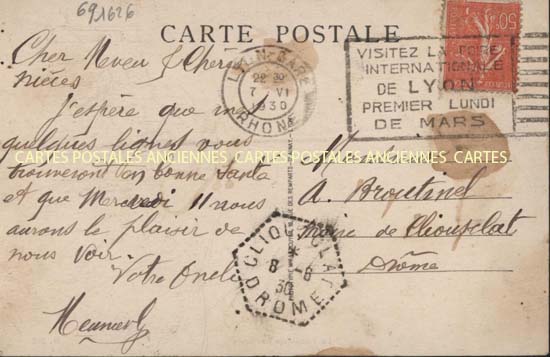 691626
CARTE POSTALE
Cher Neveu & Chères
nièces
J'espère que mes
quelques lignes vous
trouveront en bonne santé
et que Mercredi 11 nous
aurons le plaisir de
nous voir.
Votre Oncle
LYON-GARE
22 30
7 VI
1930
RHONE
VISITEZ LA FOIRE
INTERNATIONALE
DE LYON
PREMIER LUNDI
DE MARS
50c
A. Broutinel
Maire de Cliousclat
Drôme
CLIOUSCLAT
8-6
30
DROME
CARTES POSTALES ANCIENNES CARTES POSTALES ANCIENNES CARTES